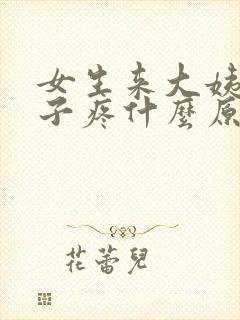 女生来大姨
子疼什麼原
花蕾兒